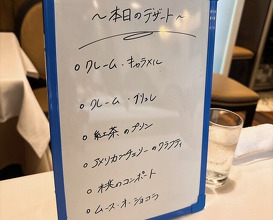 ～本日のデザート～
○ クレーム・キャラメル
○ クレーム・ブリュレ
○ 紅茶のプリン
○ アメリカンチェリーのクラフティ
○ 桃のコンポート
○ ムース・オ・ショコラ